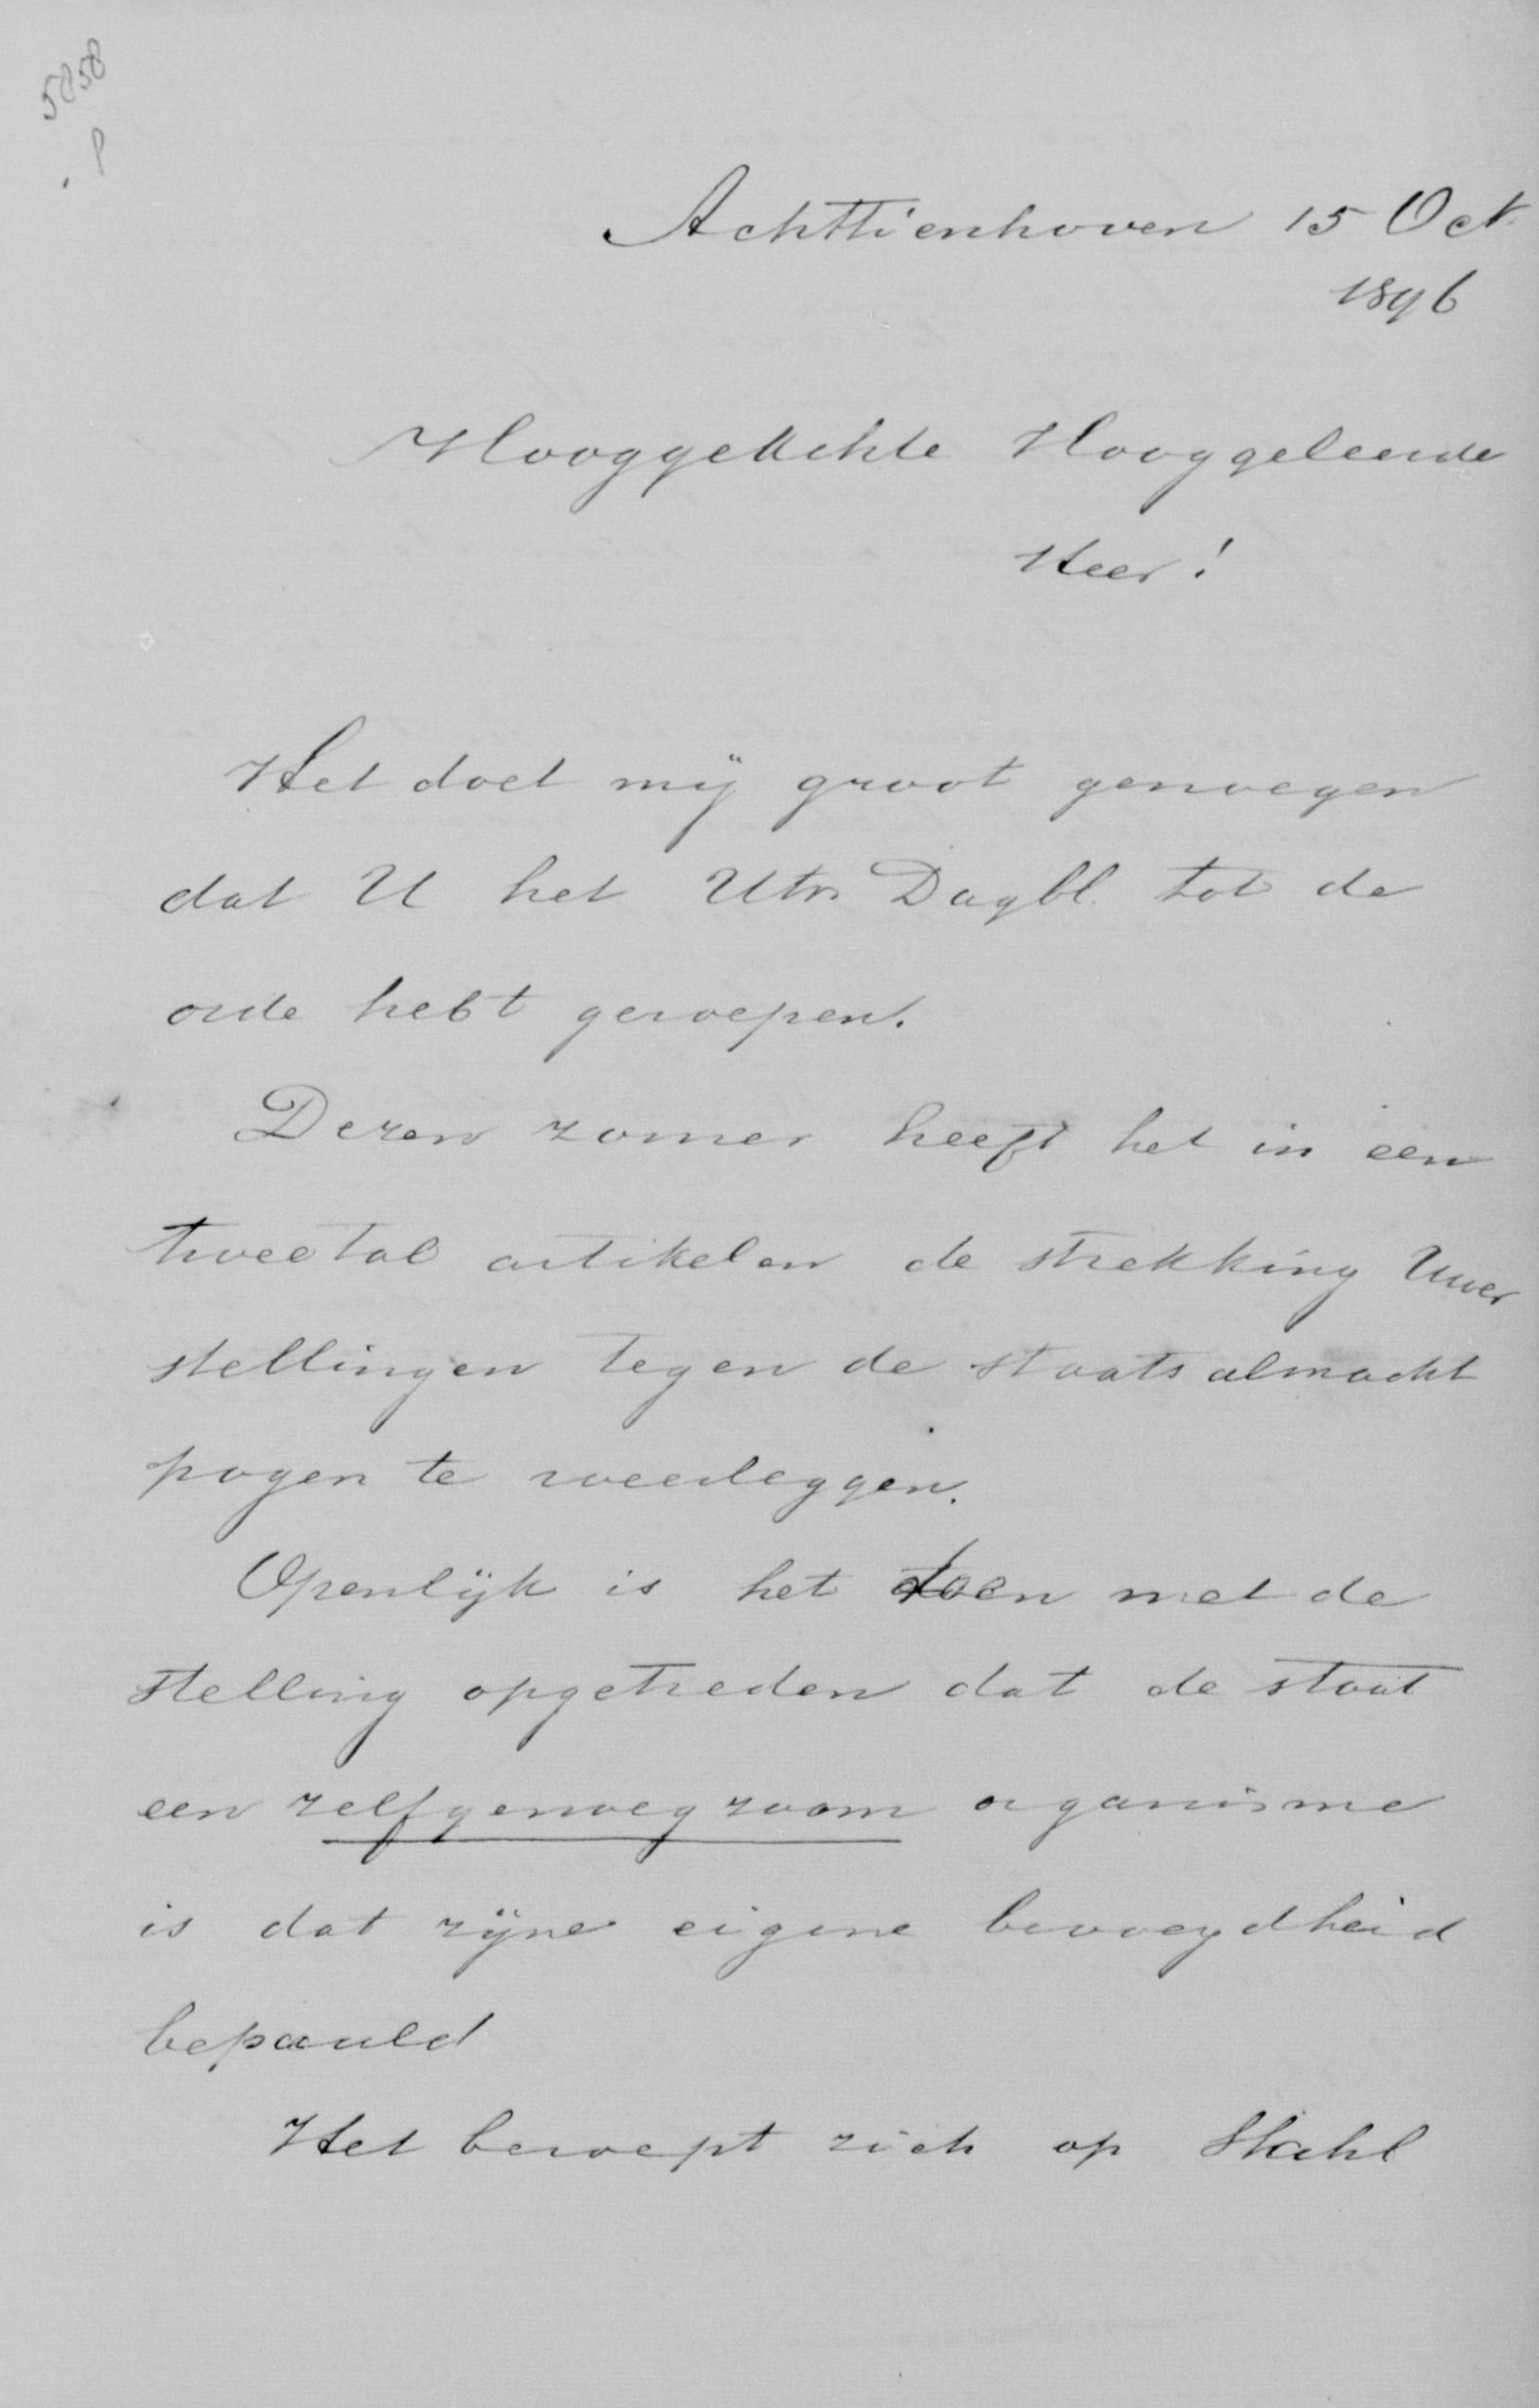 5858
P
Achttienhoven 15 Oct.
1896
Hooggeachte Hooggeleerde
Heer!
Het doet mij groot genoegen
dat U het Utr. Dagbl. tot de
orde hebt geroepen.
Dezen zomer heeft het in een
tweetal artikelen de strekking Uwer
stellingen tegen de staatsalmacht
pogen te weerleggen.
Openlijk is het toen met de
stelling opgetreden dat de staat
een zelfgenoegzaam organisme
is dat zijne eigene bevoegdheid
bepaald
Het beroept zich op Stahl